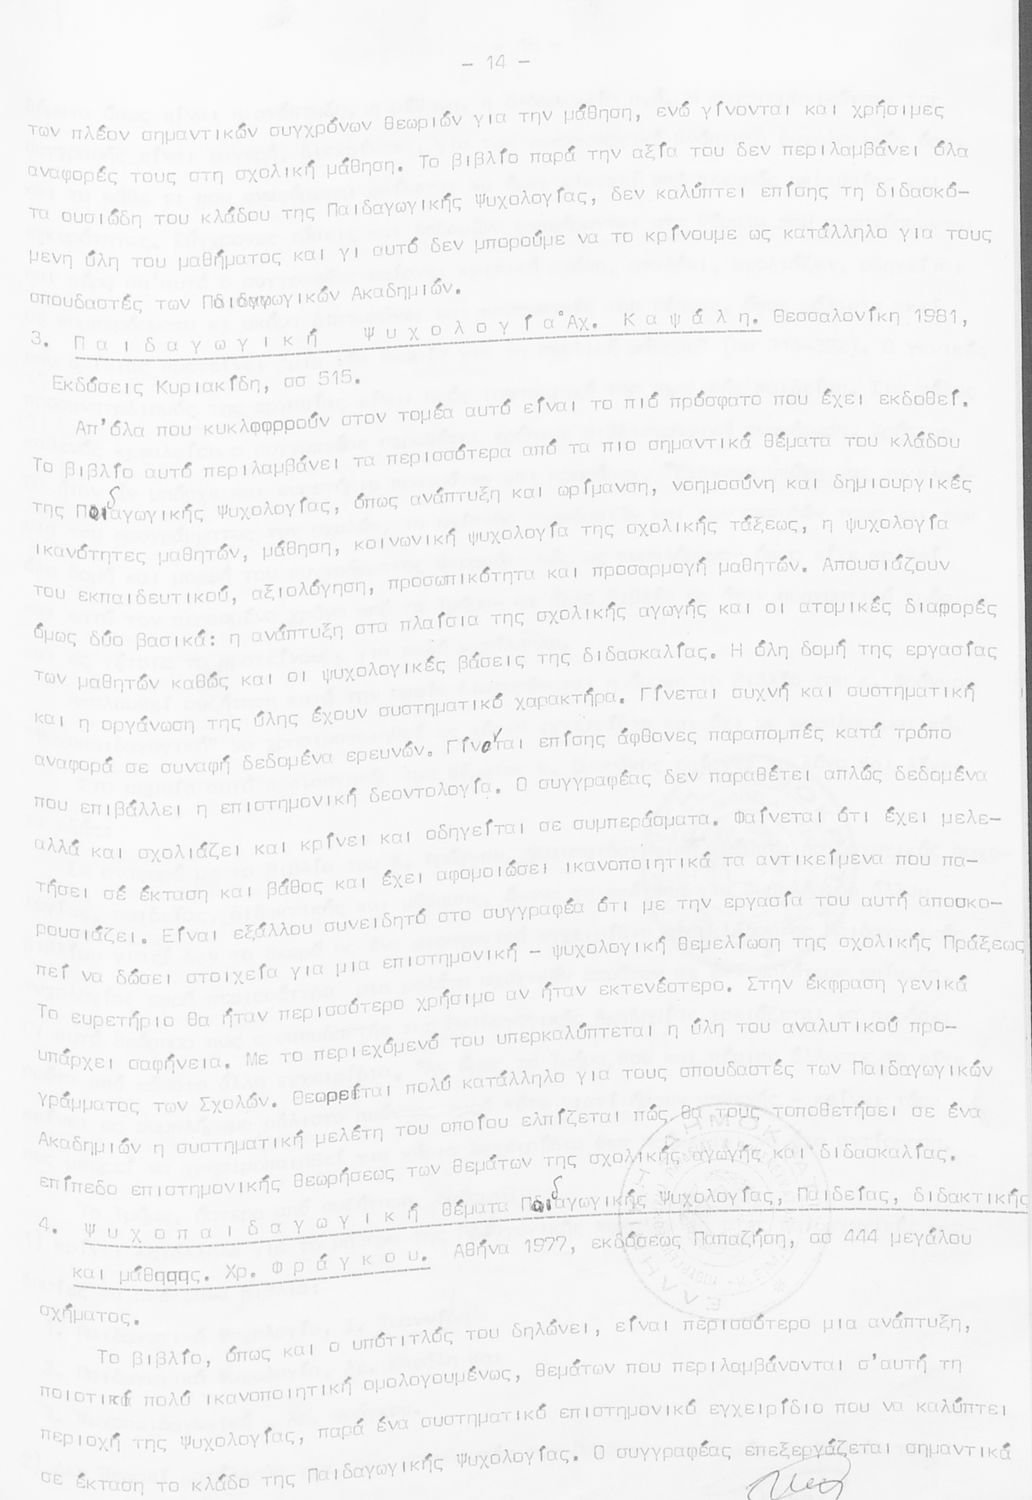 - 14 -
των πλέον σημαντικών συγχρόνων θεωριών για την μάθηση, ενώ γίνονται και χρήσιμες
αναφορές τους στη σχολική μάθηση. Το βιβλίο παρά την αξία του δεν περιλαμβάνει όλα
τα ουσιώδη του κλάδου της Παιδαγωγικής Ψυχολογίας, δεν καλύπτει επίσης τη διδασκό-
μενη ύλη του μαθήματος και γι αυτό δεν μπορούμε να το κρίνουμε ως κατάλληλο για τους
σπουδαστές των Παιδαγωγικών Ακαδημιών.
3. Παιδαγωγική Ψυχολογία° Αχ. Καψάλη. Θεσσαλονίκη 1981,
Εκδόσεις Κυριακίδη, σσ 515.
Απ'όλα που κυκλοφορούν στον τομέα αυτό είναι το πιό πρόσφατο που έχει εκδοθεί.
Το βιβλίο αυτό περιλαμβάνει τα περισσότερα από τα πιο σημαντικά θέματα του κλάδου
της Παιδαγωγικής Ψυχολογίας, όπως ανάπτυξη και ωρίμανση, νοημοσύνη και δημιουργικές
ικανότητες μαθητών, μάθηση, κοινωνική ψυχολογία της σχολικής τάξεως, η ψυχολογία
του εκπαιδευτικού, αξιολόγηση, προσωπικότητα και προσαρμογή μαθητών. Απουσιάζουν
όμως δύο βασικά: η ανάπτυξη στα πλαίσια της σχολικής αγωγής και οι ατομικές διαφορές
των μαθητών καθώς και οι ψυχολογικές βάσεις της διδασκαλίας. Η όλη δομή της εργασίας
και η οργάνωση της ύλης έχουν συστηματικό χαρακτήρα. Γίνεται συχνή και συστηματική
αναφορά σε συναφή δεδομένα ερευνών. Γίνονται επίσης άφθονες παραπομπές κατά τρόπο
που επιβάλλει η επιστημονική δεοντολογία. Ο συγγραφέας δεν παραθέτει απλώς δεδομένα
αλλά και σχολιάζει και κρίνει και οδηγείται σε συμπεράσματα. Φαίνεται ότι έχει μελε-
τήσει σέ έκταση και βάθος και έχει αφομοιώσει ικανοποιητικά τα αντικείμενα που πα-
ρουσιάζει. Είναι εξάλλου συνειδητό στο συγγραφέα ότι με την εργασία του αυτή αποσκο-
πεί να δώσει στοιχεία για μια επιστημονική - ψυχολογική θεμελίωση της σχολικής Πράξεως
Το ευρετήριο θα ήταν περισσότερο χρήσιμο αν ήταν εκτενέστερο. Στην έκφραση γενικά
υπάρχει σαφήνεια. Με το περιεχόμενό του υπερκαλύπτεται η ύλη του αναλυτικού προ-
γράμματος των Σχολών. Θεωρείται πολύ κατάλληλο για τους σπουδαστές των Παιδαγωγικών
Ακαδημιών η συστηματική μελέτη του οποίου ελπίζεται πώς θα τους τοποθετήσει σε ένα
επίπεδο επιστημονικής θεωρήσεως των θεμάτων της σχολικής αγωγής και διδασκαλίας.
4. Ψυχοπαιδαγωγική θέματα Παιδαγωγικής Ψυχολογίας, Παιδείας, διδακτικής
και μάθησης. Χρ. Φράγκου. Αθήνα 1977, εκδόσεως Παπαζήση, σσ 444 μεγάλου
σχήματος.
Το βιβλίο, όπως και ο υπότιτλός του δηλώνει, είναι περισσότερο μια ανάπτυξη,
ποιοτικά πολύ ικανοποιητική ομολογουμένως, θεμάτων που περιλαμβάνονται σ'αυτή τη
περιοχή της Ψυχολογίας, παρά ένα συστηματικό επιστημονικό εγχειρίδιο που να καλύπτει
σε έκταση το κλάδο της Παιδαγωγικής Ψυχολογίας. Ο συγγραφέας επεξεργάζεται σημαντικά